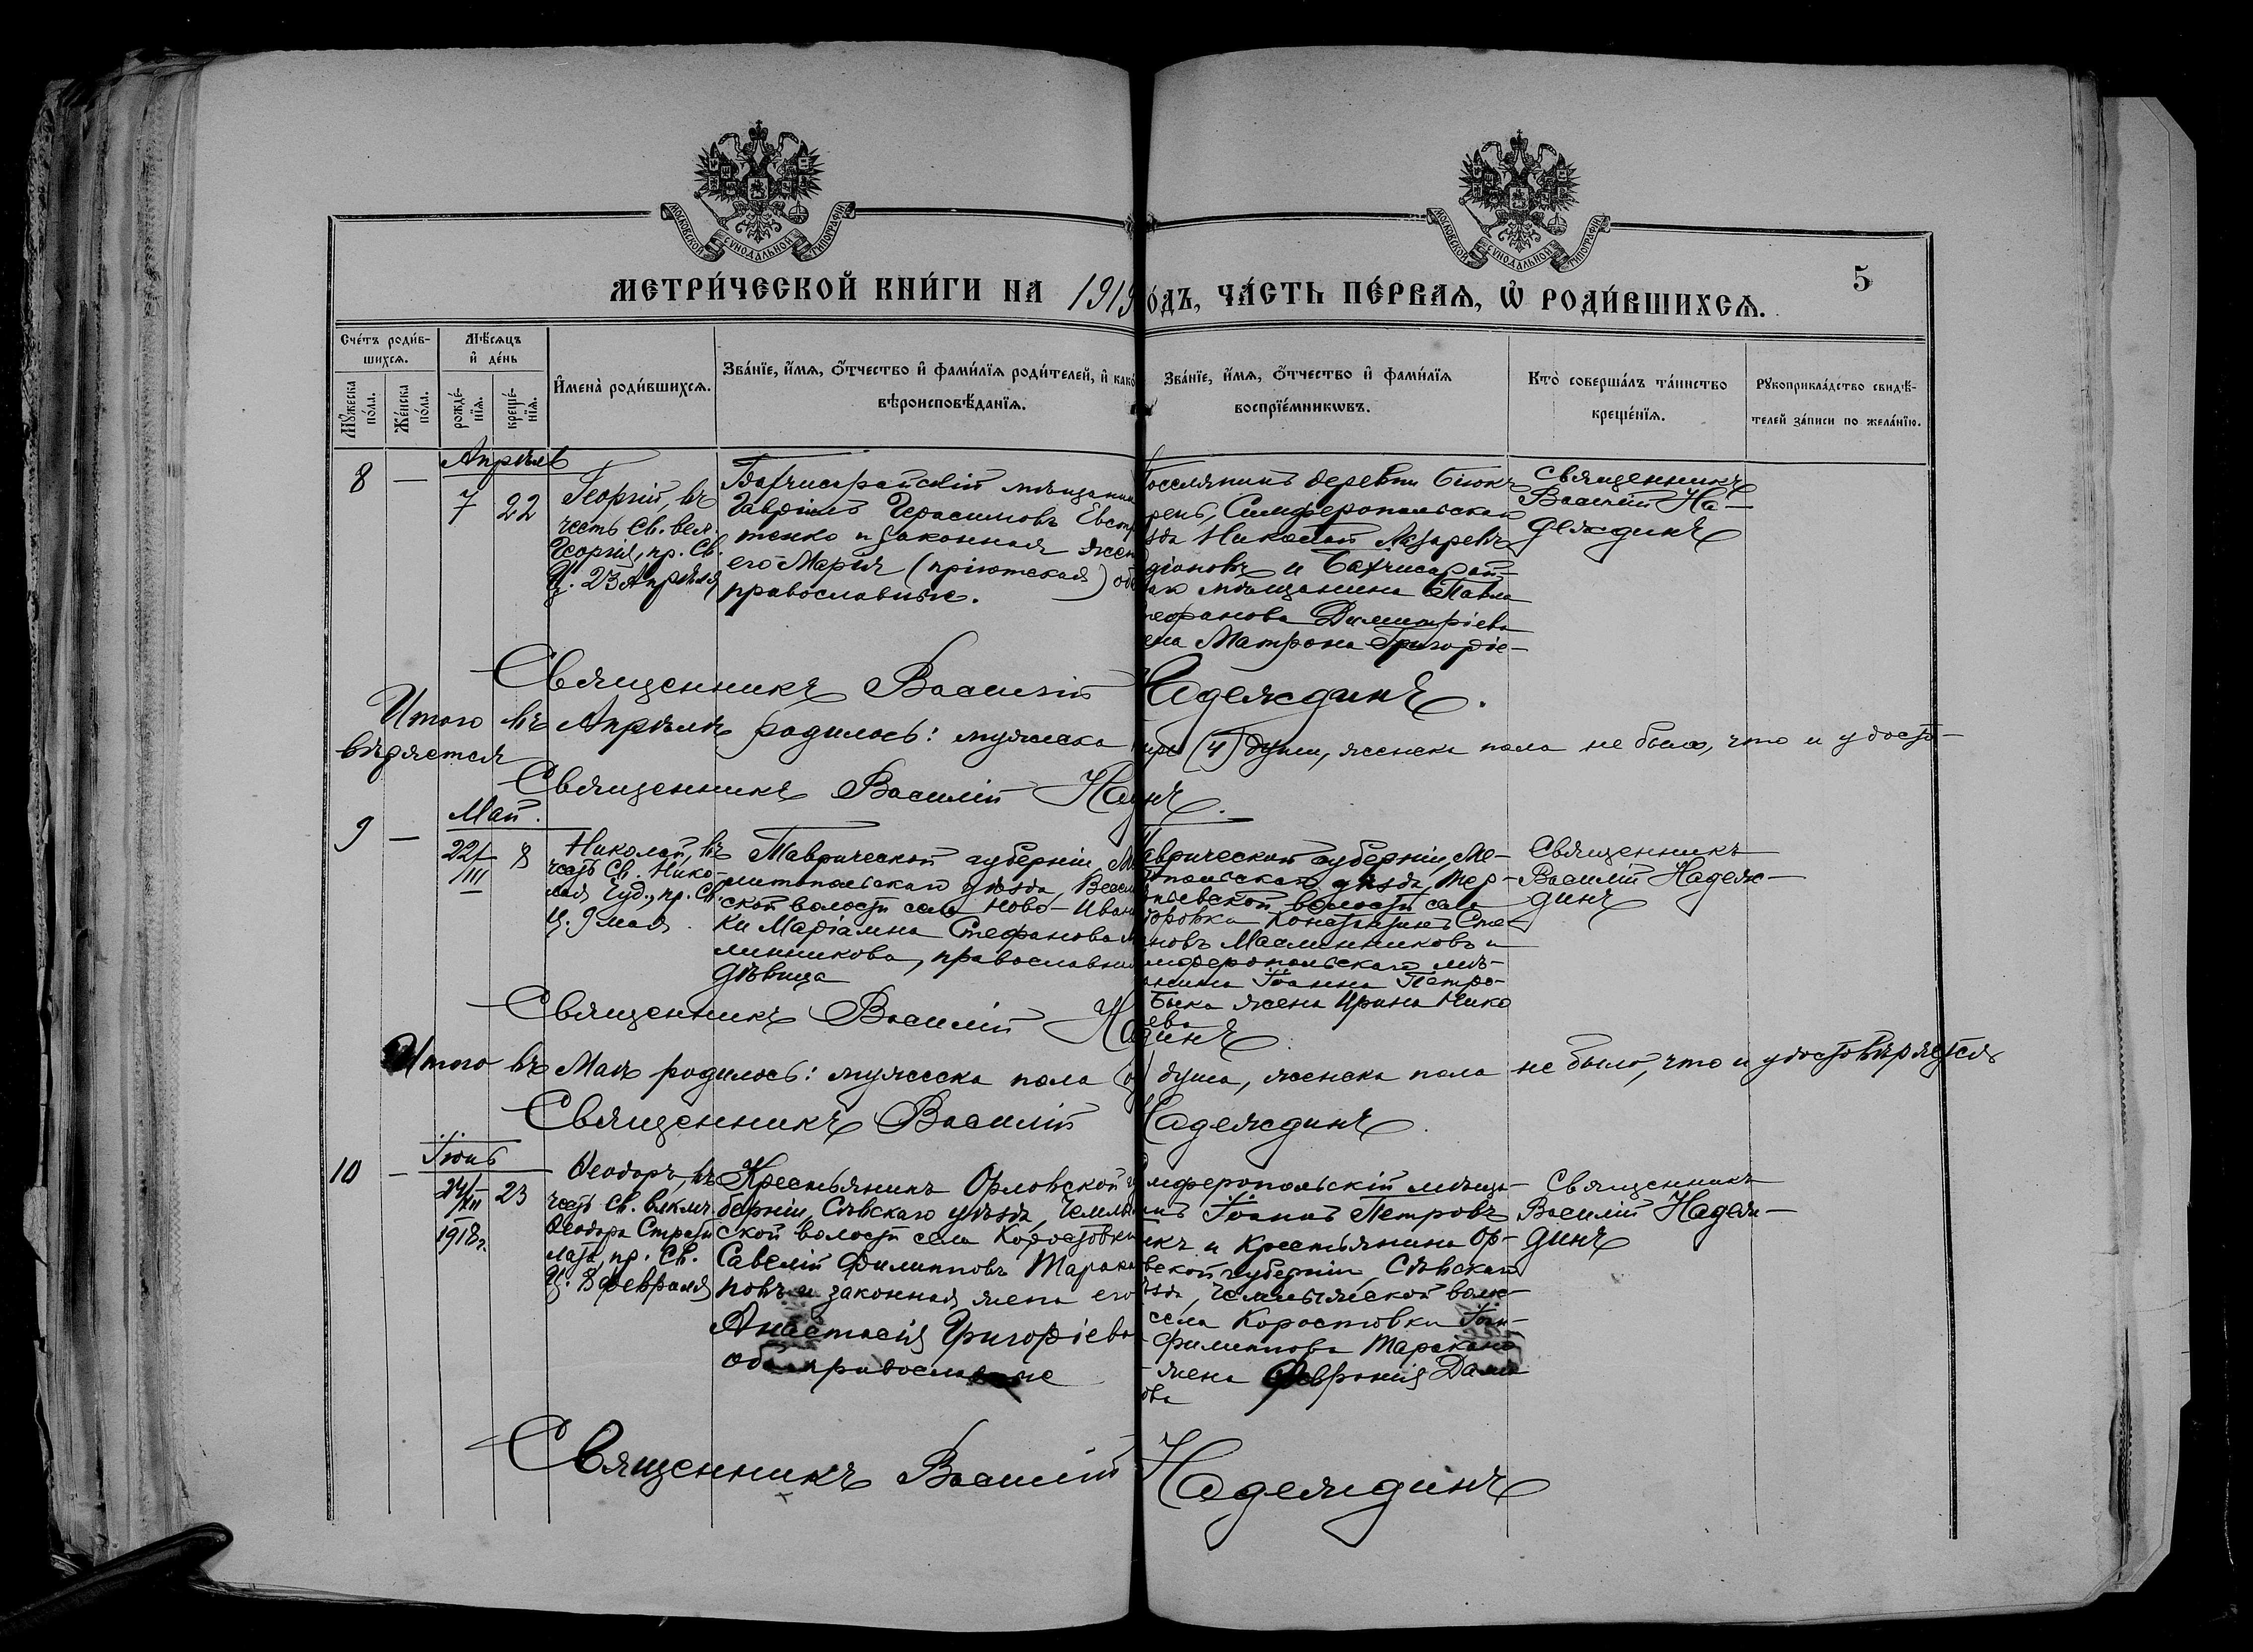 МОСКОВСКОЙ СѴНОДАЛЬНОЙ ТИПОГРАФІИ
МОСКОВСКОЙ СѴНОДАЛЬНОЙ ТИПОГРАФІИ
5
МЕТРИ́ЧЕСКОЙ КНИ́ГИ НА 1919 О́ДЪ, ЧА́СТЬ ПЕ́РВАѦ, Ѡ҆ РОДИ́ВШИХСѦ.
Сче́тъ роди́в-
шихсѧ.
Мꙋ́жеска
по́ла.
Же́нска
по́ла.
Мѣ́сѧцъ
и҆ де́нь
рожде́-
нїѧ.
креще́-
нїѧ.
И҆мена̀ роди́вшихсѧ.
Зва́нїе, и҆́мѧ, ѻ҆́тчество и҆ фами́лїѧ роди́телей, и҆ како́
вѣроисповѣ́данїѧ.
Зва́нїе, и҆́мѧ, ѻ҆́тчество и҆ фами́лїѧ
воспрїе́мникѡвъ.
Кто̀ соверша́лъ та́инство
креще́нїѧ.
Рꙋкоприкла́дство свидѣ́-
телей за́писи по жела́нїю.
8 —
Апрѣль
7 22
Георгій, въ
честь Св. вел.
Георгія, пр. Св.
Ц. 23 Апрѣля
Бахчисарайскій мѣщанин
Гавріилъ Герасимовъ Евст
тенко и законная жен
его Марія (пріютская) об
православные.
Поселянинъ деревни Біюкъ
Симферопольска
зда Николай Лазаревъ
и Бахчисарай-
мѣщанина Павла
Димитріева
ена Матрона Григоріе-
Священникъ
Василій На-
деждинъ
Священникъ Василій Надеждинъ.
Итого въ Апрѣлѣ родилось: мужеска (4) души, женска пола не было, что и удосто-
вѣряется
Священникъ Василій На инъ.
9 —
Май.
22/III 8
Николай, въ
честь Св. Нико-
лая Чуд., пр. Св.
Ц. 9 мая.
Таврической губерніи, М
литопольскаго уѣзда, Весел
ской волости села Ново-Иван
ки Маріамна Стефанова М
линникова, православна
дѣвица
Таврической губерніи, Ме-
топольскаго уѣзда, Тер-
волости села
Константинъ Сте-
новъ Маслинниковъ и
имферопольскаго мѣ-
анина Іоанна Петро-
Быка жена Ирина Нико
ева
Священникъ
Василій Надеж-
динъ
Священникъ Василій На динъ
Итого въ Маѣ родилось: мужеска пола душа, женска пола не было, что и удостовѣряется
Священникъ Василій Надеждинъ.
10 —
Іюнь
24/XII 23
1918 г.
Ѳеодоръ, въ
честь Св. влкмч.
Ѳеодора Страти
лата, пр. Св.
Ц. 8 февраля
Крестьянинъ Орловской г
берніи, Сѣвскаго уѣзда,
ской волости села Коростовки
Савелій Филипповъ Тарака
новъ и законная жена его
Анастасія Григоріева
оба православные
имферопольскій мѣща-
инъ Іоаннъ Петровъ
икъ и Крестьянина Ор-
вской губерніи, Сѣвскаго
ѣзда, волос
села Коростовки Іоан-
Филиппова Таракано
жена Февронія
ова
Священникъ
Василій Надеж-
динъ
Священникъ Василій Надеждинъ